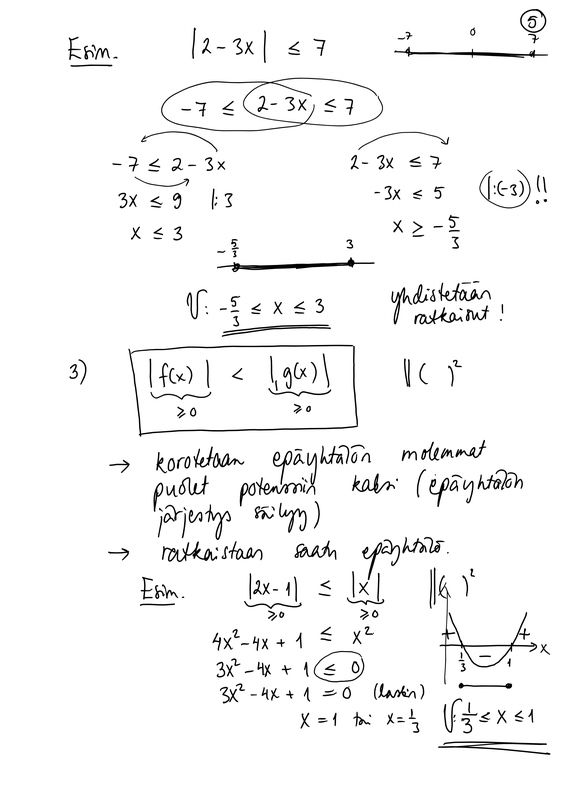 5
Esim. |2-3x| ≤ 7
-7 0 7
-7 ≤ 2-3x ≤ 7
-7 ≤ 2-3x 2-3x ≤ 7
3x ≤ 9 |:3 -3x ≤ 5 |:(-3) !!
x ≤ 3 x ≥ -5/3
-5/3 3
V: -5/3 ≤ x ≤ 3 yhdistetään
ratkaisut !
3) |f(x)| < |g(x)| ||( )²
≥0 ≥0
→ korotetaan epäyhtälön molemmat
puolet potenssiin kaksi (epäyhtälön
järjestys säilyy)
→ ratkaistaan saatu epäyhtälö.
Esim. |2x-1| ≤ |x| ||( )²
≥0 ≥0
4x²-4x+1 ≤ x²
3x²-4x+1 ≤ 0
3x²-4x+1 = 0 (laskin)
x=1 tai x=1/3
+ - + x
1/3 1
V: 1/3 ≤ x ≤ 1